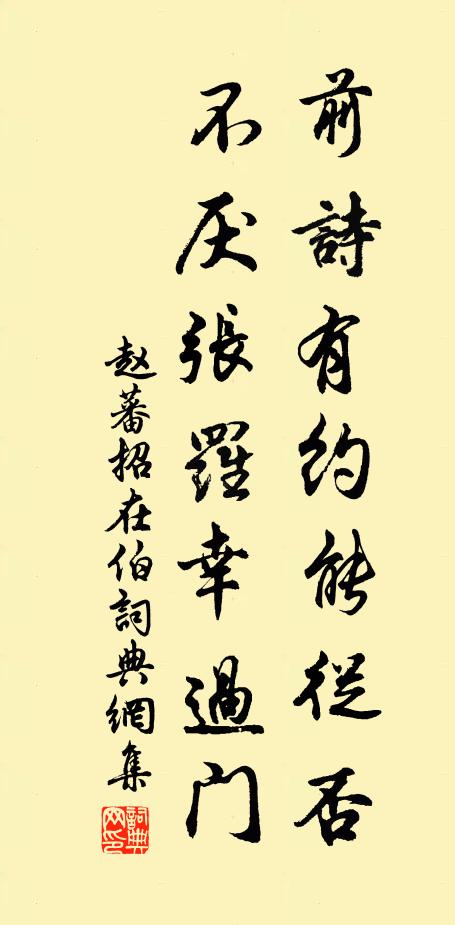 前詩有约能從否
不厌張羅幸過门
赵蕃招在伯詞典網集
詞典网印